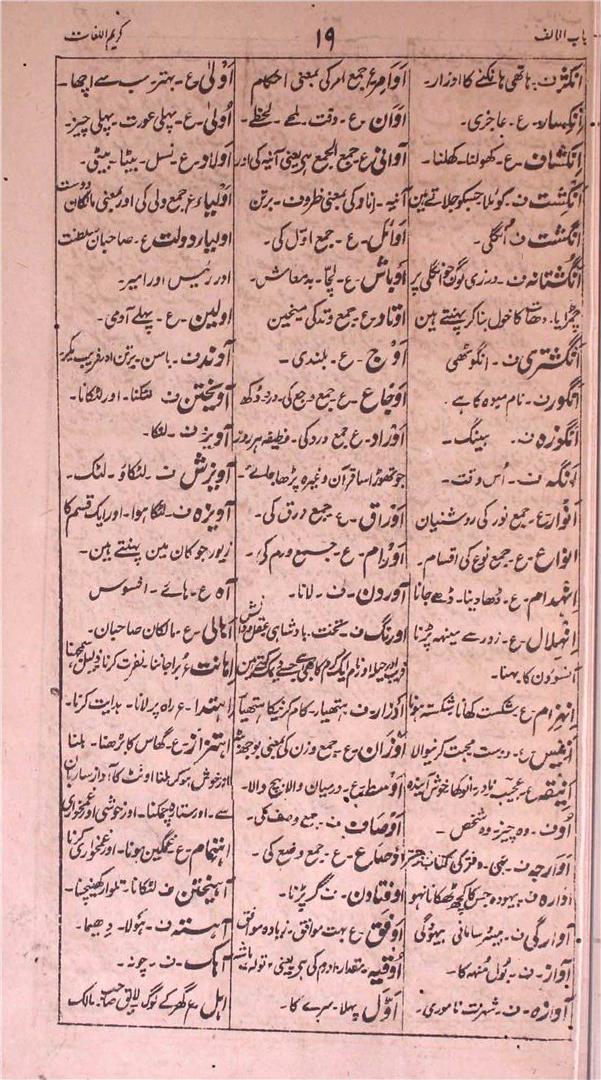 باب الالف
۱۹
کریم اللغات
انکژ ف۔ ہاتھی ہانکنے کا اوزار۔
انکسار۔ ع۔ عاجزی۔
اِنکشاف۔ ع۔ کھولنا۔ کھلنا۔
انگِشت ف۔ کوئلا جسکو جلاتے ہین
انگُشت ف۔ اُنگلی۔
انگُشتانہ ف۔ درزی لوگ جو اُنگلی پر
چمڑا یا دھات کا خول بنا کر پہنتے ہین
انگشتری ف۔ انگوٹھی
انگور۔ ف۔ نام میوہ کا ہے۔
انگوزہ ف۔ ہینگ۔
آنگہ ف۔ اُس وقت۔
انوار۔ ع۔ جمع نور کی روشنیان
انواع۔ ع۔ جمع نوع کی اقسام۔
اِنہدام۔ ع۔ ڈھا دینا۔ ڈھے جانا
اِنہلال۔ ع۔ زور سے مینہہ پڑنا
آنسوؤن کا بہنا۔
اِنہزام۔ ع۔ شکست کھانا شکستہ ہونا
انیس۔ ع۔ دوست محبت کرنیوالا
انیقہ۔ ع۔ عجیب نادر۔ انوکھا خوش آیندہ
اون۔ وہ چیز۔ وہ شخص۔
آوارجہ ف۔ بہی۔ دفتر کی کتاب
آوارہ ف۔ بیہودہ جس کا کچھ ٹھکانا نہو
آوارگی ف۔ بیسر سامانی بیہودگی
آواز۔ ف۔ بول مُنہہ کا۔
آوازہ۔ ف۔ شہرت ناموری۔
اَوَامِر۔ ع۔ جمع امر کی بمعنی احکام
اَوَان۔ ع۔ وقت۔ لمحے۔ لحظے۔
اَوَانی۔ ع۔ جمع الجمع ہی یعنی آنیہ کی اور
آنیہ۔ اناء کی بمعنی ظروف۔ برتن
اَوَائل۔ ع۔ جمع اوّل کی۔
اَوباش۔ ع۔ لُچّا۔ بدمعاش۔
اَوتاد۔ ع۔ جمع وتد کی میخین
اَوج۔ ع۔ بلندی۔
اَوجاع۔ ع۔ جمع وجع کی۔ درد دُکھ
اَوراد۔ ع۔ جمع ورد کی۔ وظیفہ ہر روز
جو تھوڑا سا قرآن وغیرہ پڑھا جائے۔
اَوراق۔ ع۔ جمع ورق کی۔
اَورام۔ ع۔ جمع ورم کی۔
آوردن۔ ف۔ لانا۔
اورنگ ف۔ تخت۔ بادشاہی عقل و دانش
اَوزار۔ ف۔ ہتھیار۔ کام کرنیکا ہتھیار
اَوزان۔ ع۔ جمع وزن کی بمعنی بوجھ
اَوسط۔ ع۔ درمیان والا۔ بیچ والا۔
اَوصاف۔ ف۔ جمع وصف کی۔
اَوضاع۔ ع۔ جمع وضع کی۔
اوفتادن۔ ف گر پڑنا۔
اَوفق۔ ع۔ بہت موافق۔ زیادہ موافق
اَوّل پہلا۔ سرے کا۔
اَوْلیٰ ع۔ بہتر سب سے اچھا۔
اُولیٰ۔ ع۔ پہلی عورت۔ پہلی چیز۔
اَولاد۔ ع۔ نسل۔ بیٹا۔ بیٹی۔
اَولیاء۔ ع۔ جمع ولی کی اور بمعنی مالکان دوست
اولیاء دولت ع۔ صاحبان سلطنت
اور رئیس اور امیر۔
اولین۔ ع۔ پہلے آدمی۔
آوند ف۔ باسن۔ برتن اور فریب
آویختن ف لٹکنا۔ اور لٹکانا۔
آویز ف۔ لٹکا۔
آویزش ف۔ لٹکاؤ۔ لٹک۔
آویزہ ف۔ لٹکا ہوا۔ اور ایک قسم کا
زیور جو کان مین پہنتے ہین۔
آہ ع۔ ہائے۔ افسوس
اَہالی۔ ع۔ مالکان صاحبان۔
اِہانت ع۔ بُرا جاننا۔ نفرت کرنا۔ ذلیل سمجھنا
اہتدا۔ ع۔ راہ پر لانا۔ ہدایت کرنا۔
اہتزاز۔ ع۔ گھاس کا بڑھنا۔ ہلنا
اور خوش ہو کر ہلنا اونٹ کا آواز ساربان
سے۔ اور ستارہ چمکنا۔ اور خوشی اور غمخواری
اہتمام۔ ع۔ غمگین ہونا۔ اور غمخواری کرنا
آہیختن ف لٹکانا۔ تلوار کھینچنا۔
آہستہ ف۔ ہَولا۔ دھیما۔
آہک۔ ف۔ چونہ۔
اہل۔ ع۔ گھر کے لوگ لائق صاحب۔ مالک